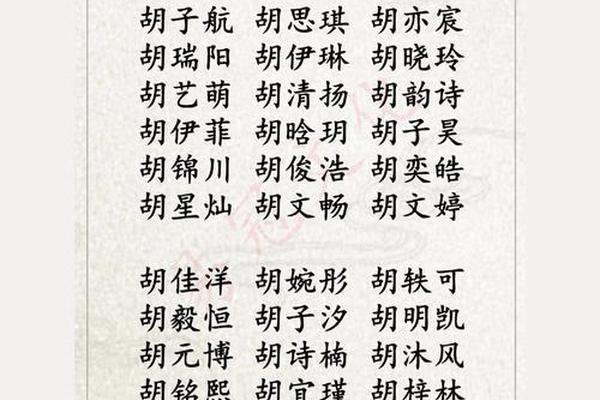 胡子航 胡思琪 胡亦宸
胡瑞阳 胡伊琳 胡晓玲
胡艺萌 胡清扬 胡韵诗
胡伊菲 胡晗玥 胡子昊
胡锦川 胡俊浩 胡奕皓
胡星灿 胡文畅 胡文婷
胡佳洋 胡婉彤 胡轶可
胡毅恒 胡子汐 胡明凯
胡元博 胡诗楠 胡沐风
胡铭熙 胡宜瑾 胡梓林